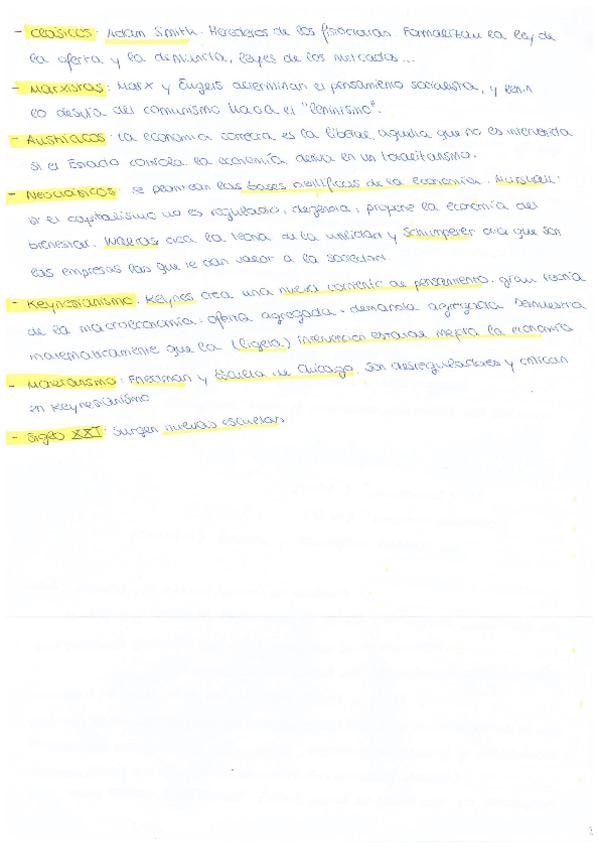 - Clásicos: Adam Smith. Herederos de los fisiócratas. Formalizan la ley de
la oferta y la demanda, leyes de los mercados...
- Marxistas: Marx y Engels determinan el pensamiento socialista, y Lenin
lo desvía del comunismo hacia el "leninismo".
- Austríacos: la economía correcta es la liberal, aquella que no es intervenida
si el Estado controla la economía deriva en un totalitarismo.
- Neoclásicos: se plantean las bases científicas de la economía. Marshall:
si el capitalismo no es regulado, degenera, propone la economía del
bienestar. Walras crea la teoría de la utilidad y Schumpeter cree que son
las empresas las que le dan valor a la sociedad
- Keynesianismo. Keynes crea una nueva corriente de pensamiento. gran teoría
de la macroeconomía. oferta agregada - demanda agregada Demuestra
matemáticamente que la (ligera) intervención estatal mejora la economía
- Monetarismo: Friedman y Escuela de Chicago. Son desreguladores y critican
en Keynesianismo
- Siglo XXI: Surgen nuevas escuelas